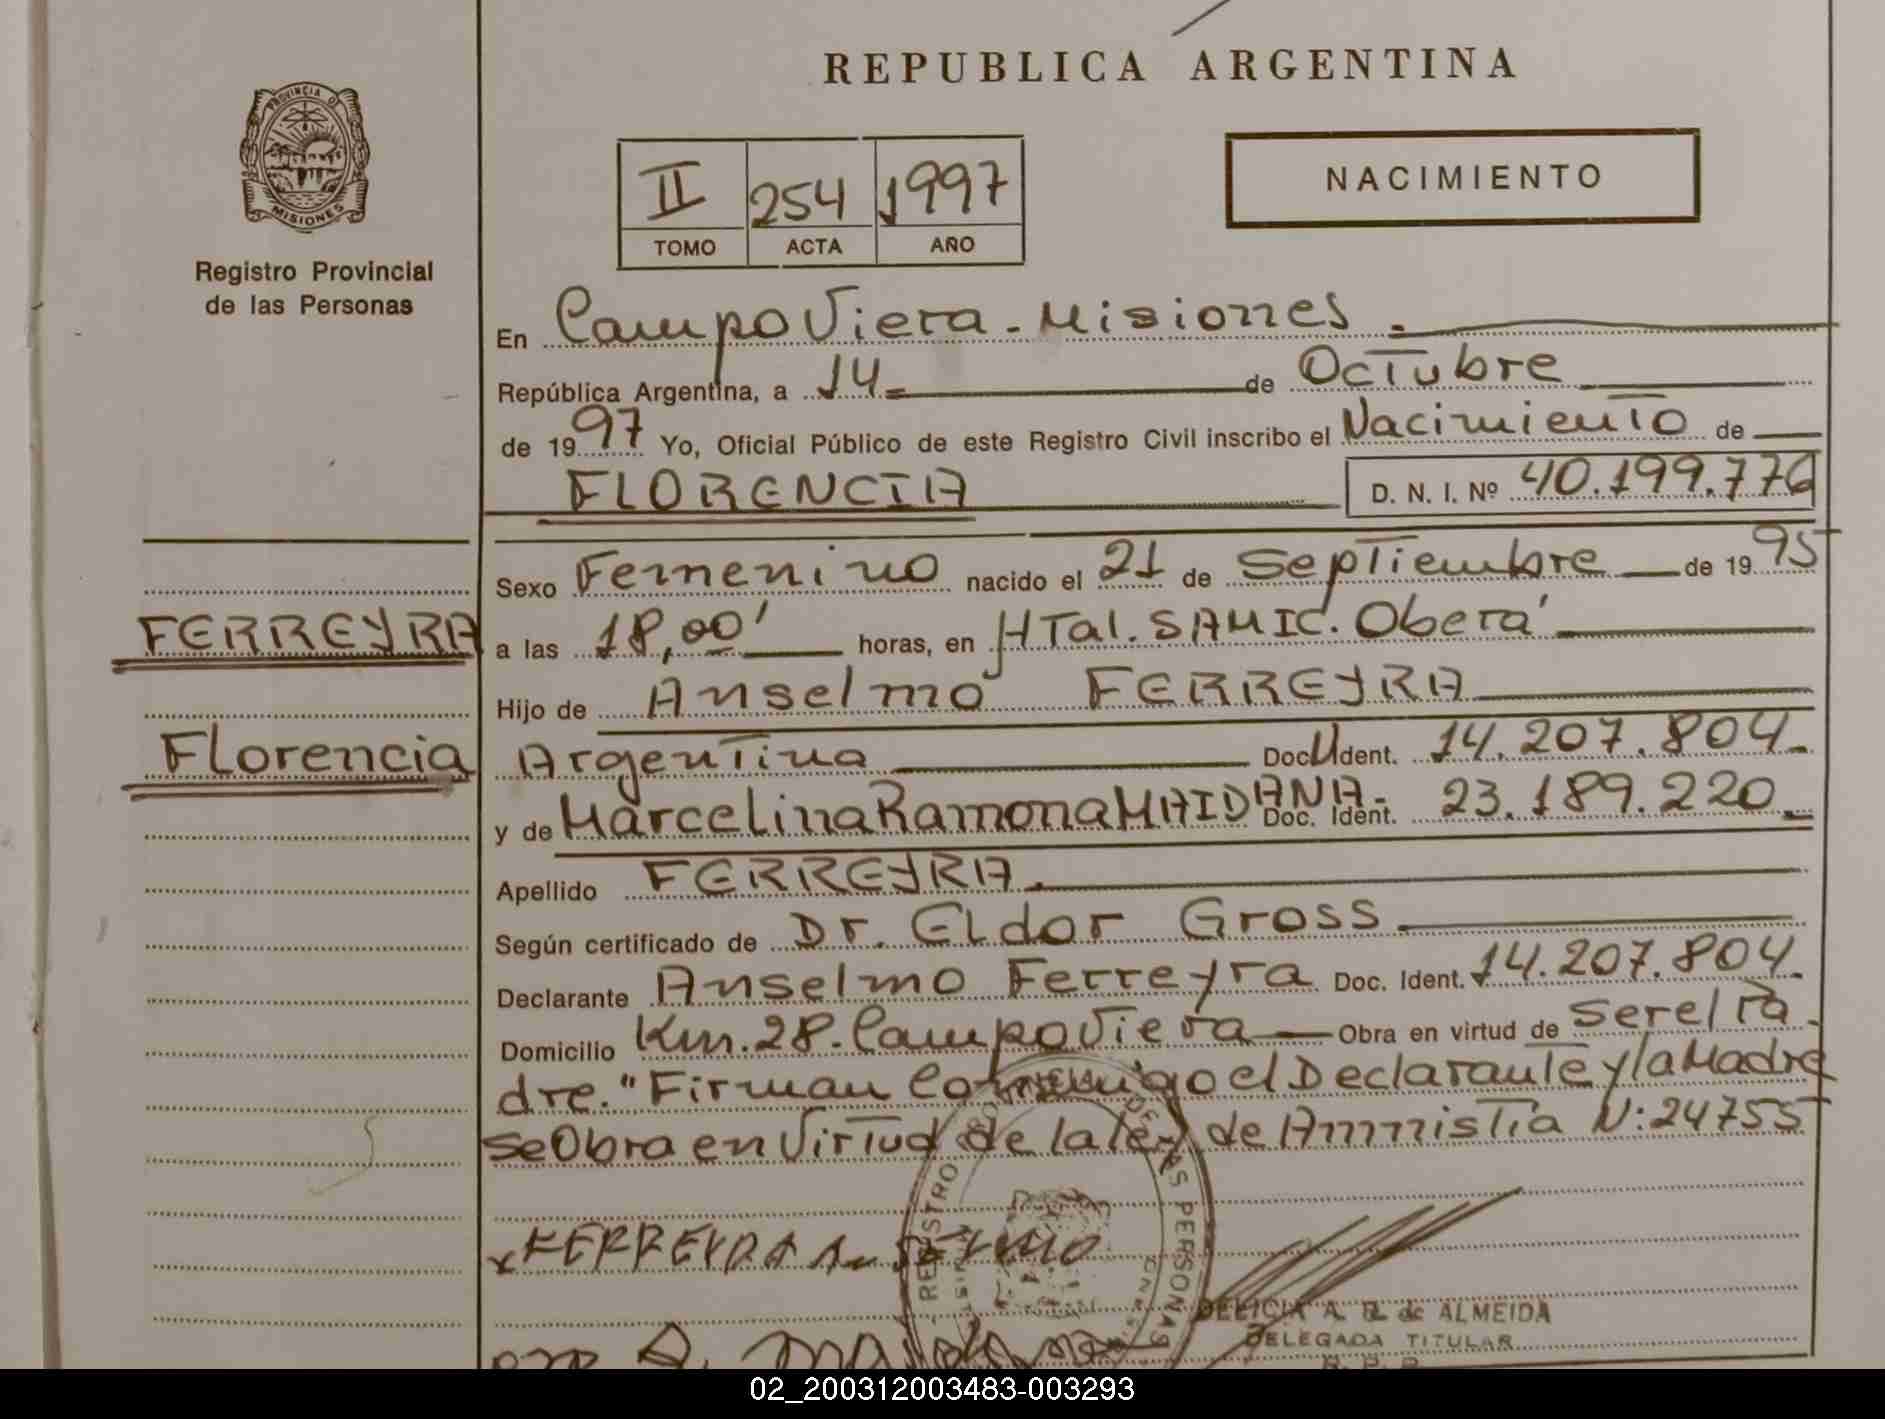 REPUBLICA ARGENTINA
PROVINCIA D
MISIONES
Registro Provincial
de las Personas
II 254 1997
TOMO ACTA AÑO
NACIMIENTO
En Campo Viera - Misiones.
República Argentina, a 14 de Octubre
de 1997 Yo, Oficial Público de este Registro Civil inscribo el Nacimiento de
FLORENCIA D. N. I. Nº 40.199.776
Sexo Femenino nacido el 21 de Septiembre de 1995
FERREYRA
a las 18,00' horas, en HTal. SAMIC. Oberá
Hijo de Anselmo FERREYRA
Florencia
Argentina Doc. Ident. 14.207.804.
y de Marcelina Ramona MAIDANA - Doc. Ident. 23.189.220.
Apellido FERREYRA.
Según certificado de Dr. Eldor Gross
Declarante Anselmo Ferreyra Doc. Ident. 14.207.804.
Domicilio Km. 28. Campo Viera Obra en virtud de Ser el Pa
dre. "Firman Conmigo el Declarante y la Madre
se Obra en Virtud de la ley de Ammistia N: 24755
REGISTRO DE LAS PERSONAS
x FERREYRA
DELICIA A. R. de ALMEIDA
DELEGADA TITULAR
R. P. P.
02_200312003483-003293